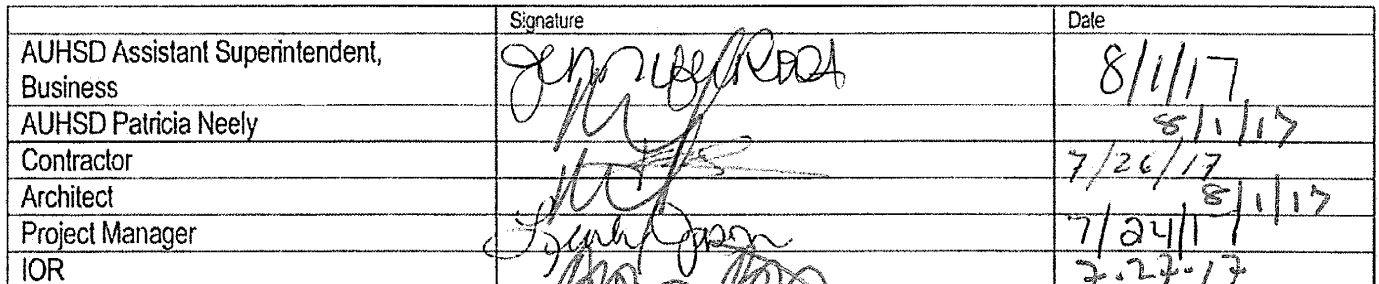 Signature Date
AUHSD Assistant Superintendent,
Business 8/1/17
AUHSD Patricia Neely 8/1/17
Contractor 7/26/17
Architect 8/1/17
Project Manager 7/24/17
IOR 7.27.17